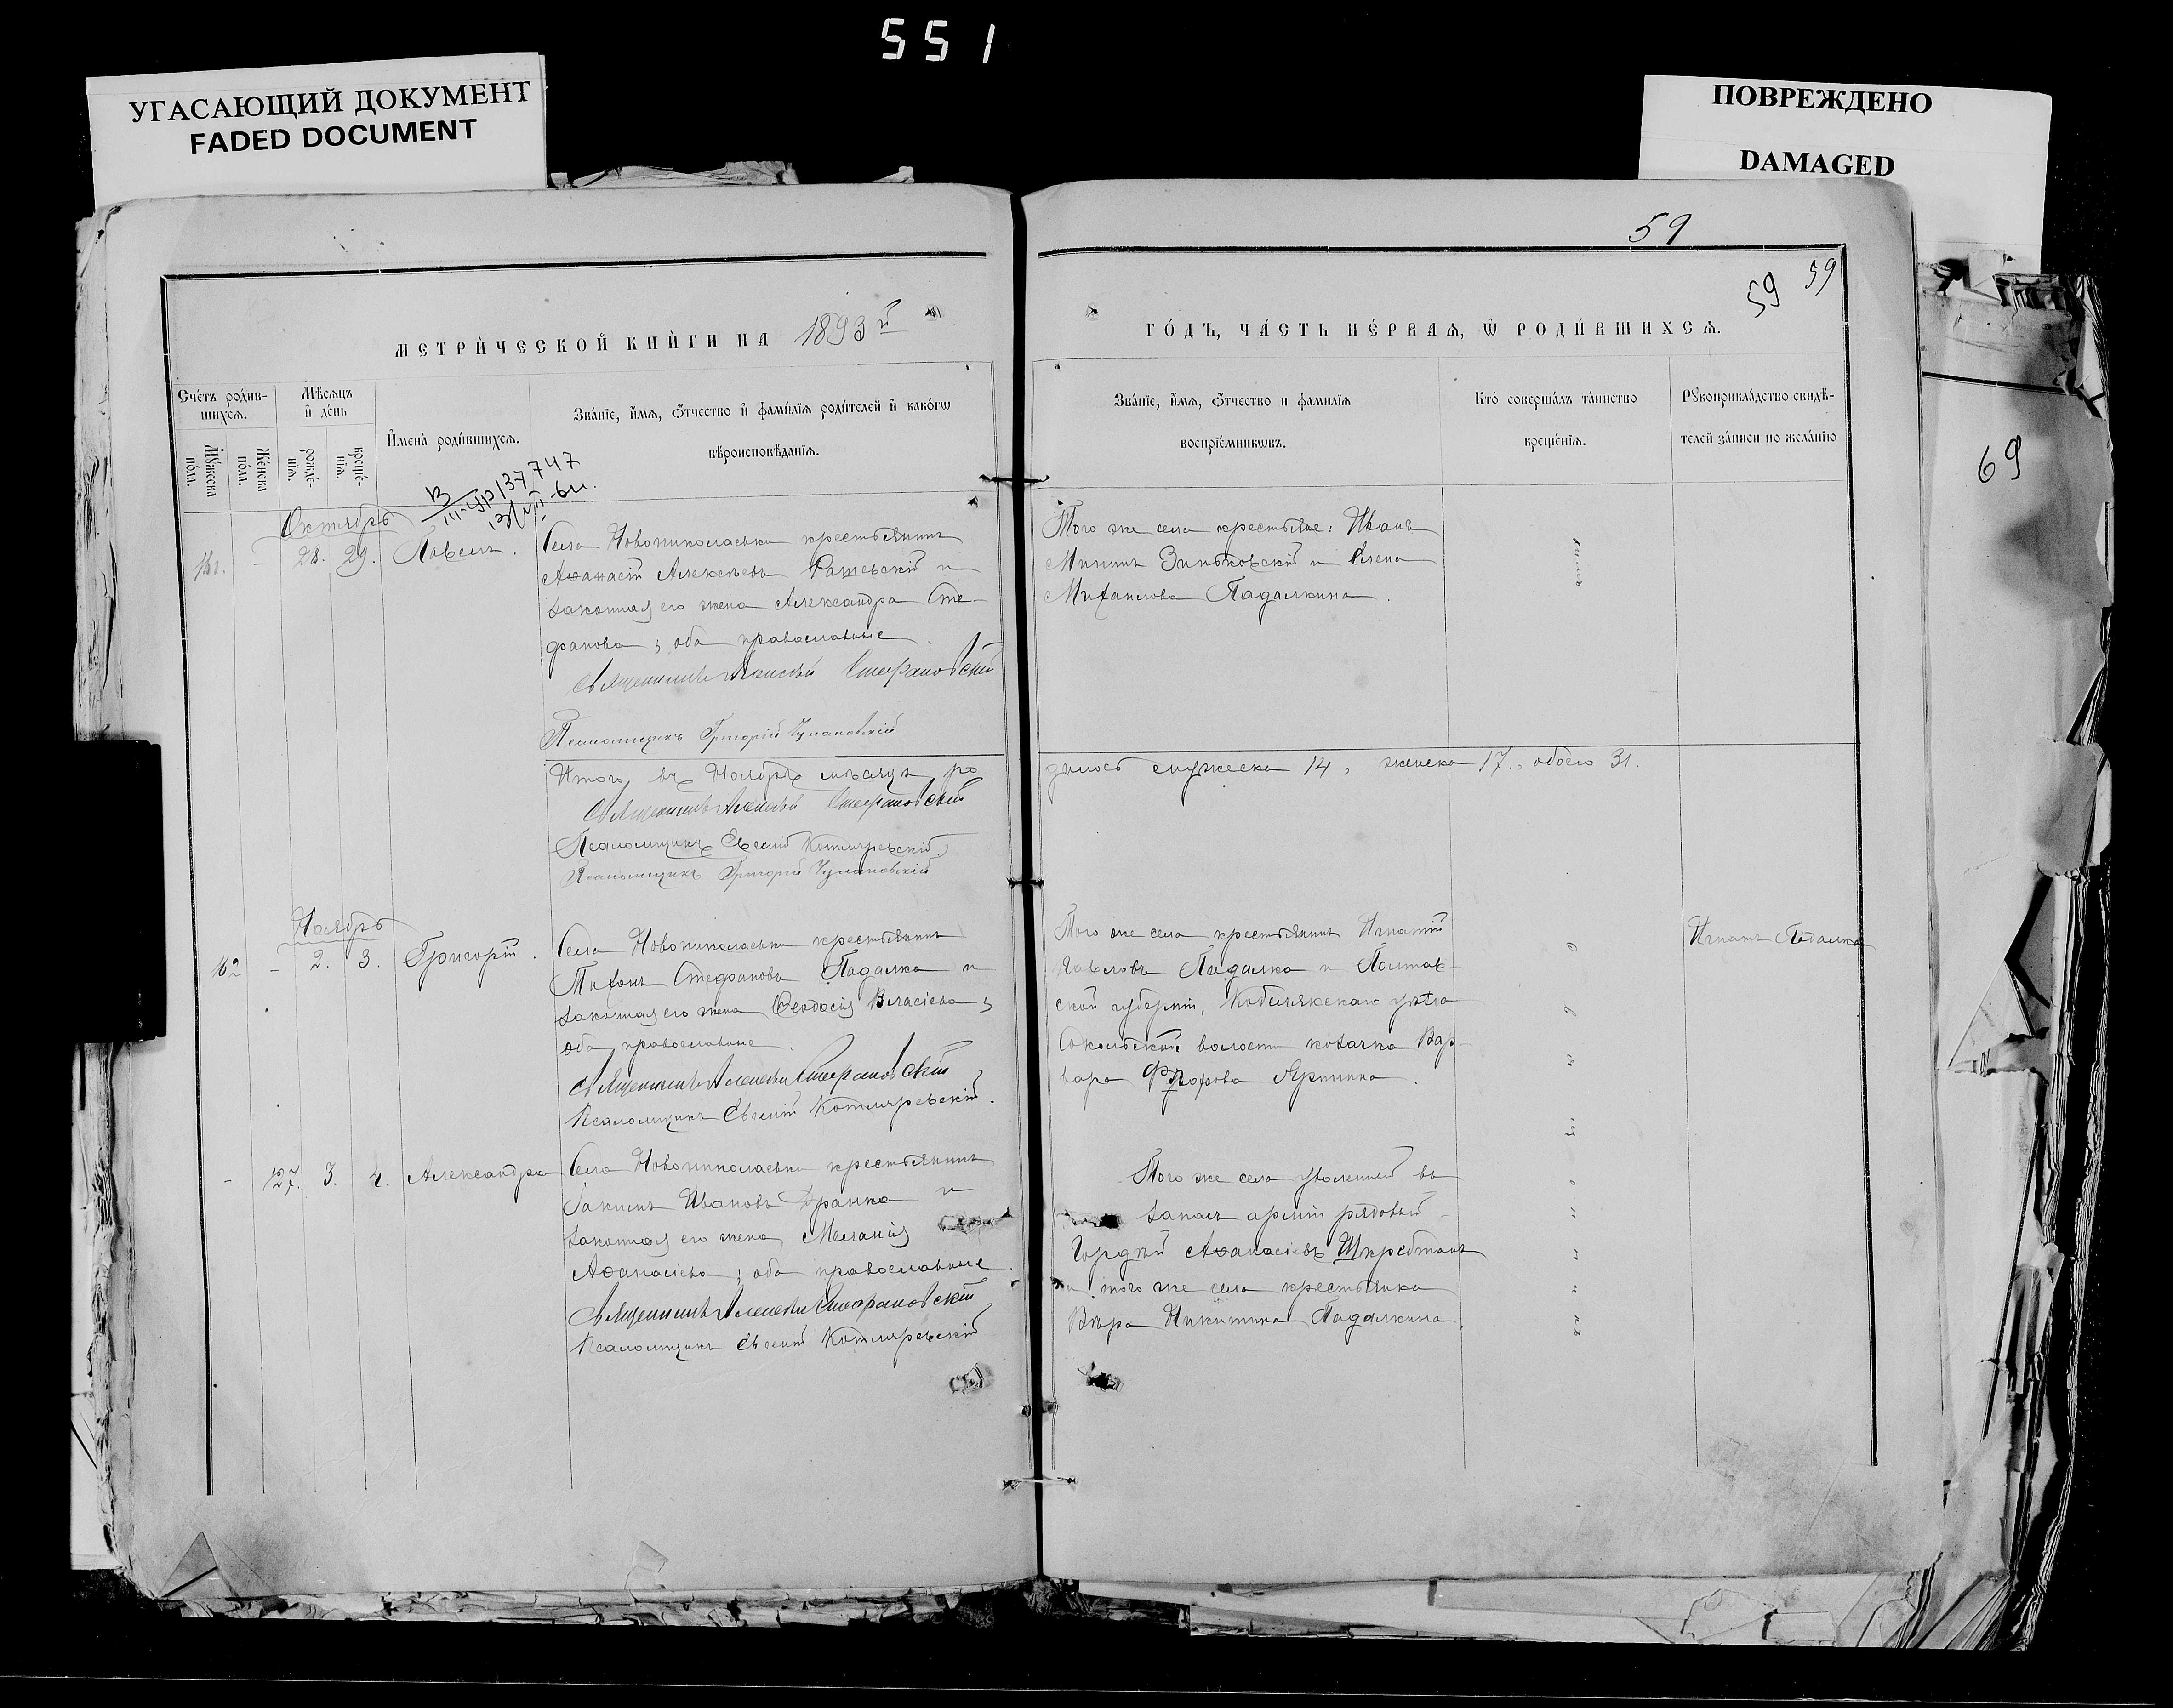 551
УГАСАЮЩИЙ ДОКУМЕНТ
FADED DOCUMENT
ПОВРЕЖДЕНО
DAMAGED
59
59 59
69
МЕТРИ́ЧЕСКОЙ КНИ́ГИ НА 1893й
ГО́ДЪ, ЧА́СТЬ ПЕ́РВАѦ, Ѿ РОДИ́ВШИХСѦ.
Сче́тъ роди́в-
шихсѧ.
Мѣ́сѧцъ
и҆ де́нь
Мꙋ́жеска
по́ла.
Же́нска
по́ла.
рожде́-
нїѧ.
креще́-
нїѧ.
И҆мена̀ роди́вшихсѧ.
Зва́нїе, и҆́мѧ, ѻ҆́тчество и҆ фами́лїѧ роди́телей и҆ како́гѡ
вѣроисповѣ́данїѧ.
Зва́нїе, и҆́мѧ, ѻ҆́тчество и фами́лїѧ
воспрїе́мникѡвъ.
Кто̀ соверша́лъ та́инство
креще́нїѧ.
Рꙋкоприкла́дство свидѣ́-
телей за́писи по жела́нїю
Октябрь
161. - 28. 29. Павелъ.
Села Новониколаевки крестьянинъ
Аѳанасій Алексѣевъ Рашевскій и
законная его жена Александра Сте-
фанова; оба православные.
Священникъ Алексѣй Стефановскій
Псаломщикъ Григорій Чумановскій
Того же села крестьяне: Иванъ
Мининъ Зиньковскій и Елена
Михаилова Падалкина.
Итого въ Ноябрѣ мѣсяцѣ ро
дилось мужеска 14, женска 17., обоего 31.
Священникъ Алексѣй Стефановскій
Псаломщикъ Евсевій Котляревскій
Псаломщикъ Григорій Чумановскій
Ноябрь
162 - 2. 3. Григорій.
Села Новониколаевки крестьянинъ
Тихонъ Стефановъ Падалка и
законная его жена Ѳеодосія Власіева;
оба православные.
Священникъ Алексѣй Стефановскій
Псаломщикъ Евсевій Котляревскій.
Того же села крестьянинъ Игнатій
Павловъ Падалка и Полтав-
ской губерніи, Кобелякскаго уѣзда
Сокольской волости козачка Вар-
вара
Игнатъ Падалка
- 127. 3. 4. Александра
Села Новониколаевки крестьянинъ
Іакимъ Ивановъ Франка и
законная его жена Меланія
Аѳанасіева; оба православные.
Священникъ Алексѣй Стефановскій
Псаломщикъ Евсевій Котляревскій
Того же села уволенный въ
запасъ арміи рядовый
Гордѣй Аѳанасіевъ
и того же села крестьянка
Вѣра Никитина Падалкина.